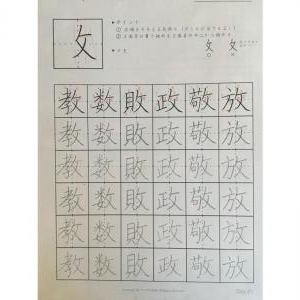 攵
ポイント
メモ
攵 攵
教 数 敗 政 敬 放
教 数 敗 政 敬 放
教 数 敗 政 敬 放
教 数 敗 政 敬 放
教 数 敗 政 敬 放
教 数 敗 政 敬 放